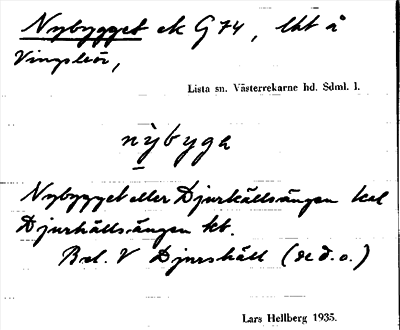 Nybygget ek G 74, lht å
Vingsleör,
Lista sn. Västerrekarne hd. Sdml. l.
nybygə
Nybygget eller Djurkällsängen kal
Djurkällsängen kt.
Bel. V Djurskäll (se d. o.)
Lars Hellberg 1935.